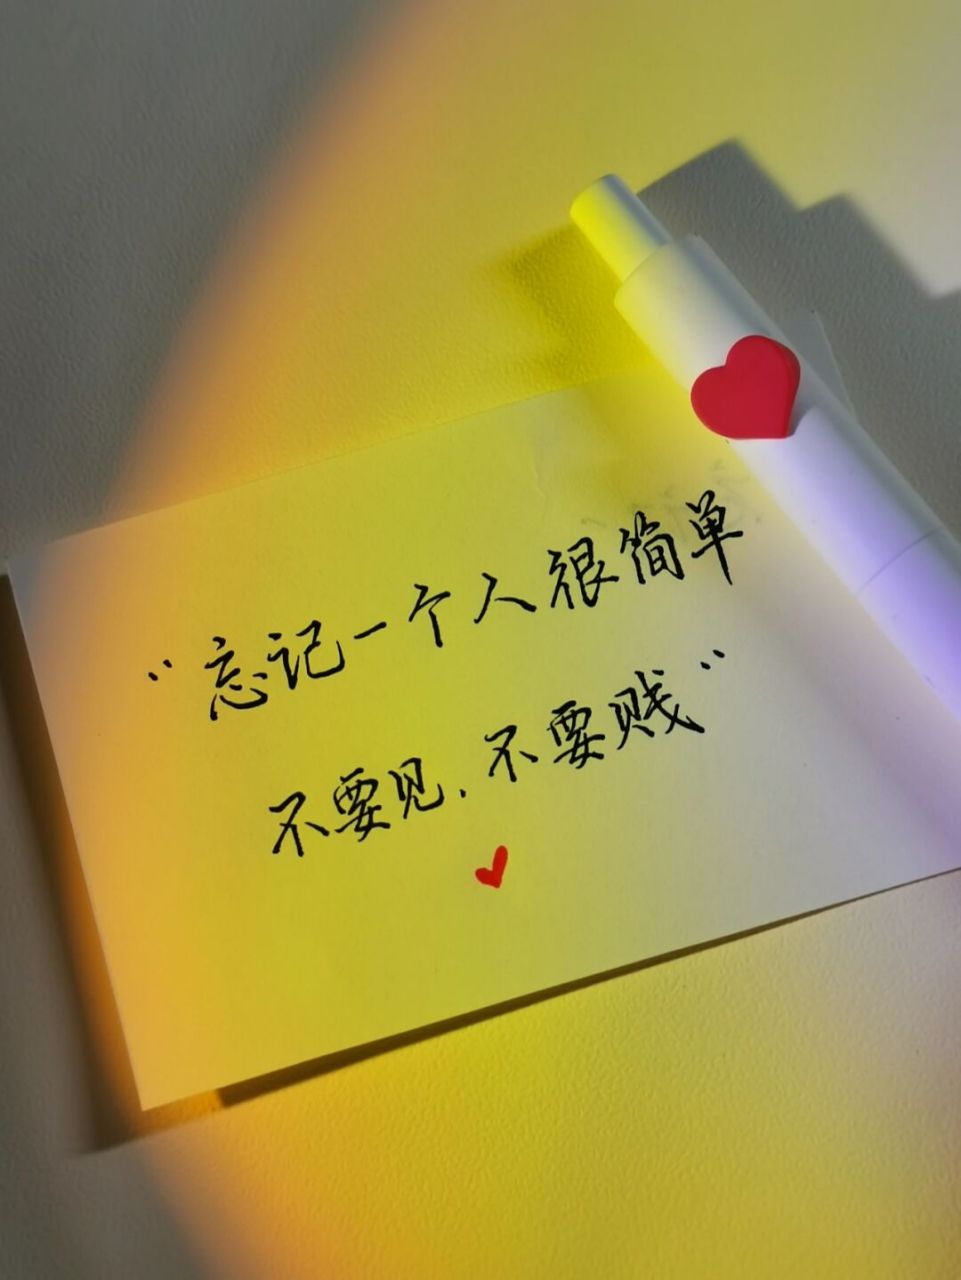 “忘记一个人很简单
不要见.不要贱”